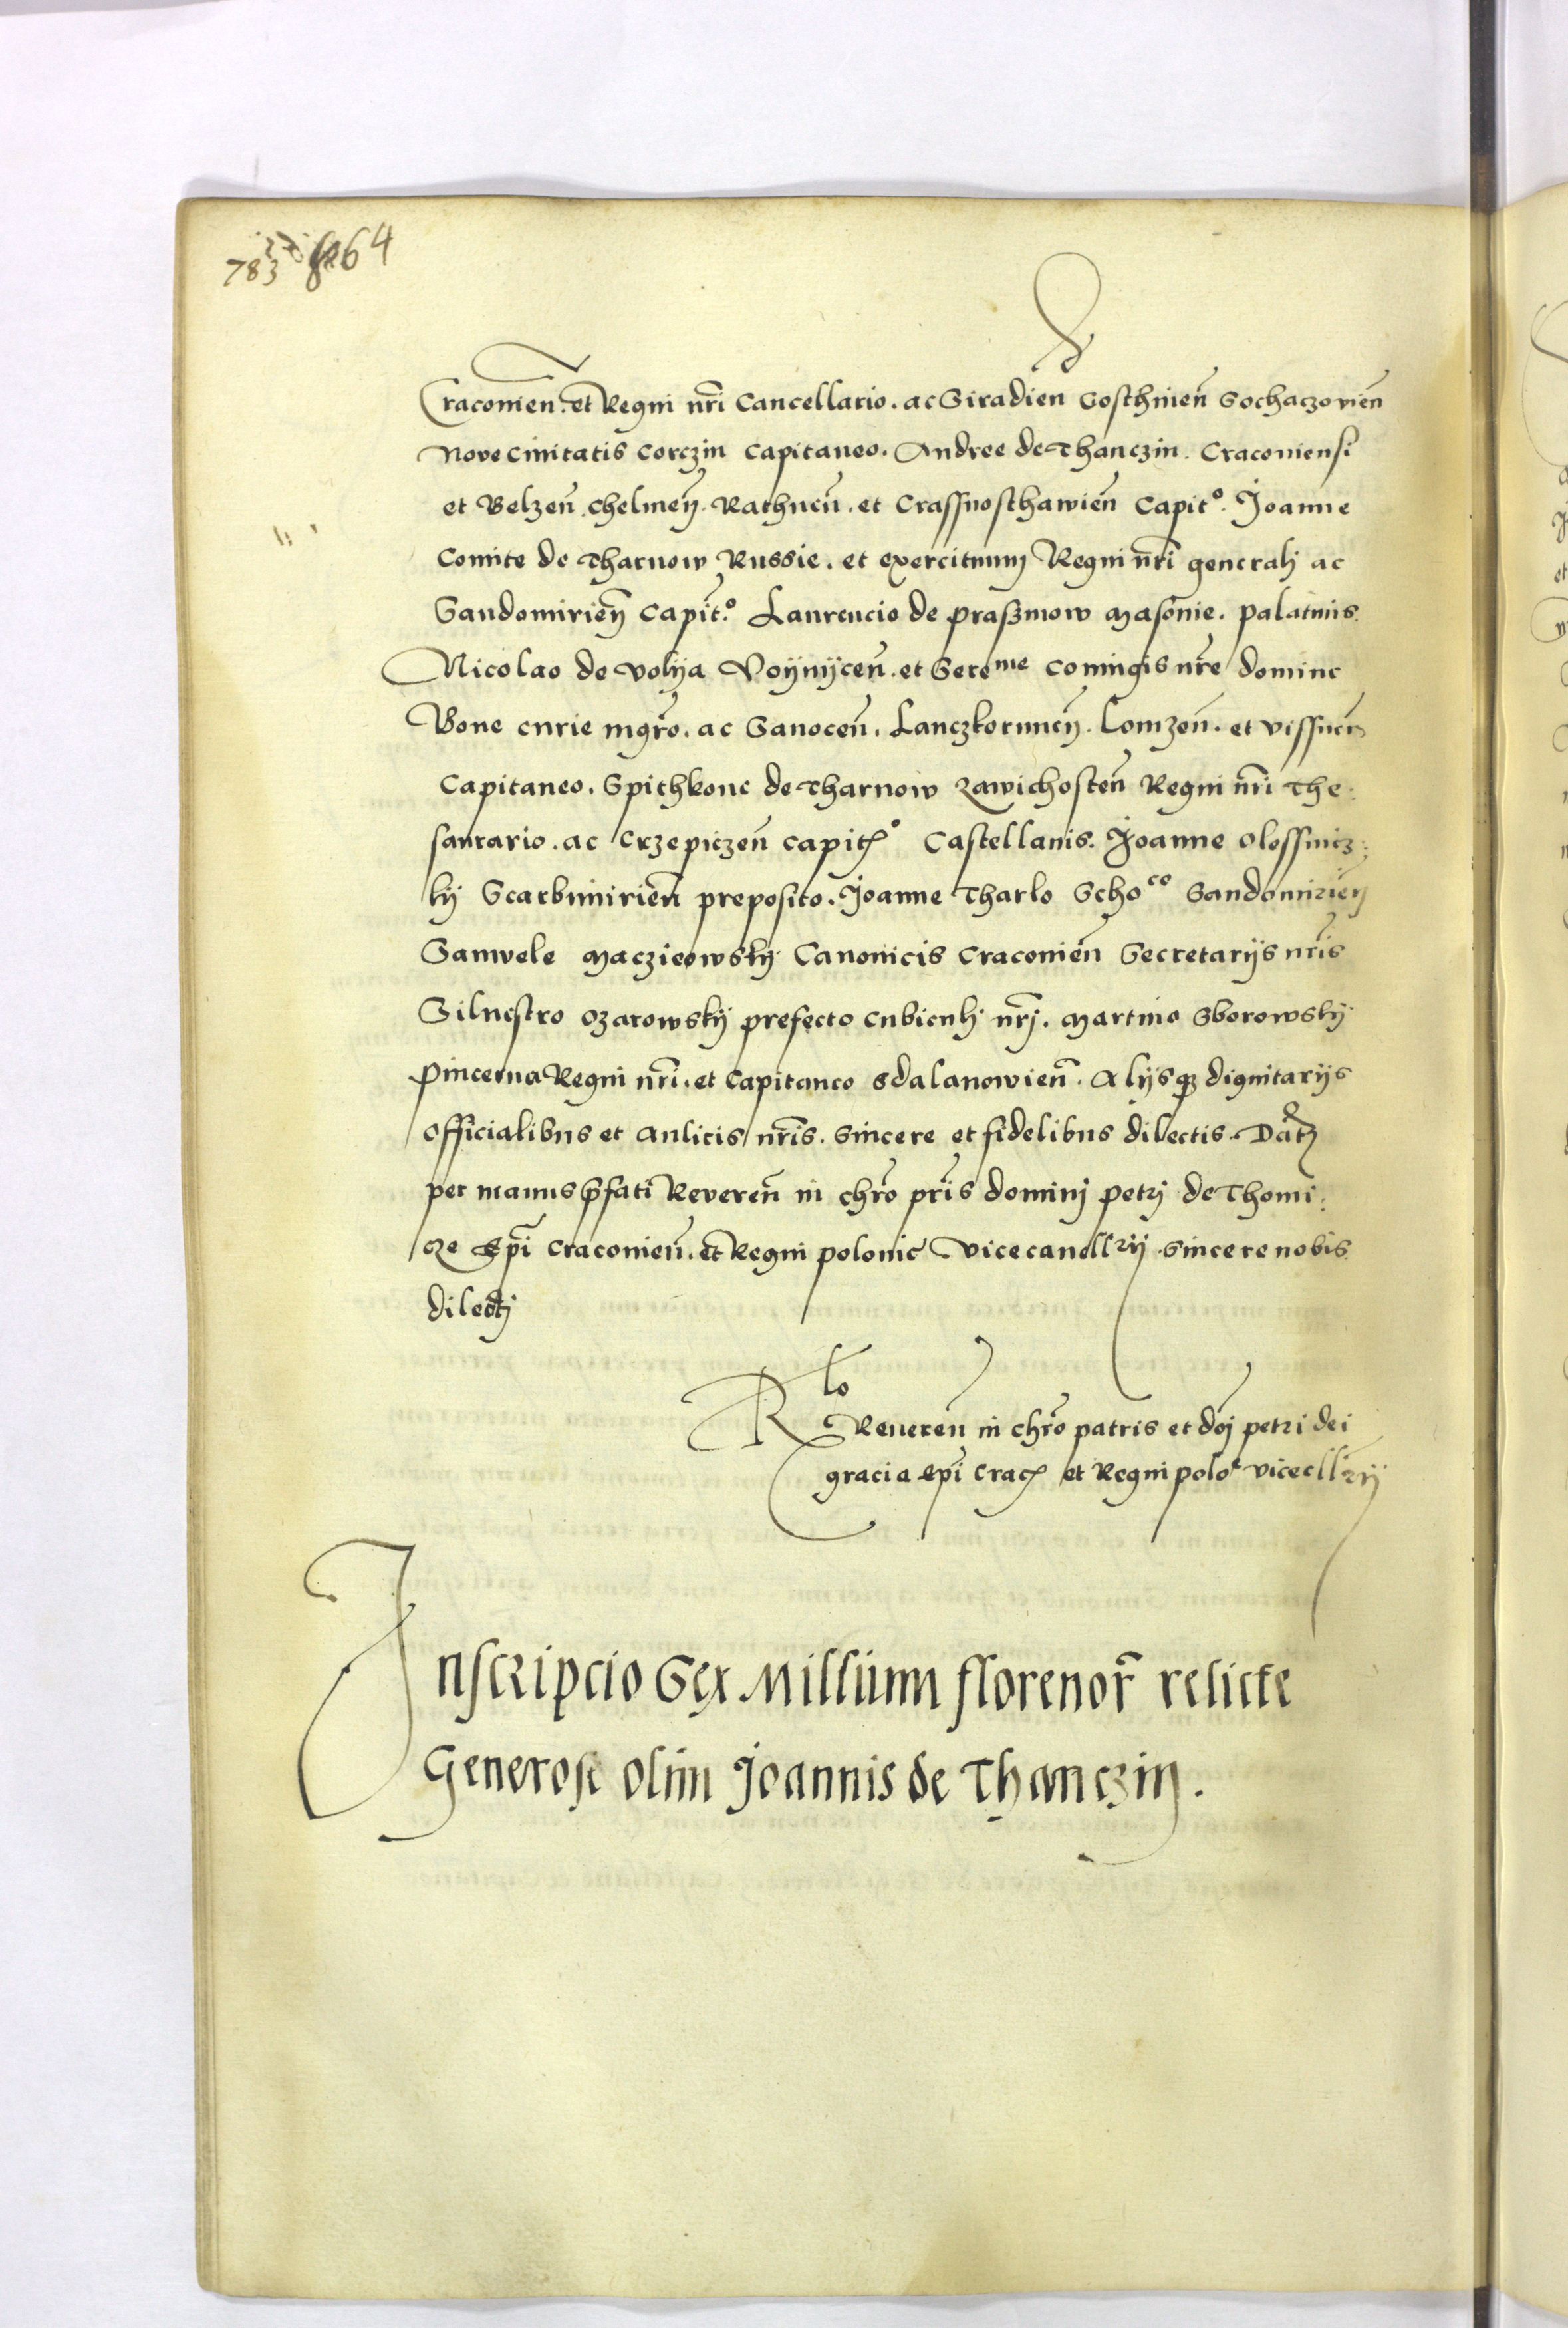 783 864
Craconien̄. et Regni nr̄i Cancellario. ac Siradien Gosthinien̄ Sochaczovien̄
Nove Civitatis Corczin Capitaneo. Andree de Thanczin. Craconiensi
et Belzen̄. Chelmen̄. Rathnen̄. et Crassnosthawien̄ Capit⁰. Joanne
Comite de Tharnow Russie. et exercituum Regni nr̄i generali ac
Sandomirien̄ Capit⁰. Laurencio de praszmow Masovie. palatinis.
Nicolao de volija Voijnijcen̄. et Sereᵐᵉ coniugis nr̄e domine
Bone curie mgr̄o. ac Sanocen̄. Lanczkorunen̄. Lomzen̄. et vissnen̄
Capitaneo. Spithkone de Tharnow Zawichosten̄ Regni nr̄i The:
saurario. ac Crzepiczen̄ capit⁰ Castellanis. Joanne Olessnicz:
kij Scarbimirien̄ preposito. Joanne Tharlo Schoᶜᵒ Sandomirien̄
Samuele Maczieowskij Canonicis Craconien̄ Secretarijs nr̄is
Silvestro Ozarowskij prefecto cubiculj nr̄j. Martino Sborowskij
Pincerna Regni nr̄i. et Capitaneo Odalanowien̄. Alijsqꝫ dignitarijs
Officialibus et aulicis nr̄is. sincere et fidelibus dilectis. Dat̄
per manus p̄fati Reveren̄ in chr̄o pr̄is dominj petrj de Thomi:
cze Epī Craconien̄. et Regni polonie Vicecancellrij. sincere nobis
dilectj
Rlo
Reveren̄ in chr̄o patris et dn̄j petri dei
gracia epī crac̄ et Regni poloᵉ vicecllrij
Inscripcio Sex Millium florenor̄ relicte
Generosi olim Joannis de Thanczin.